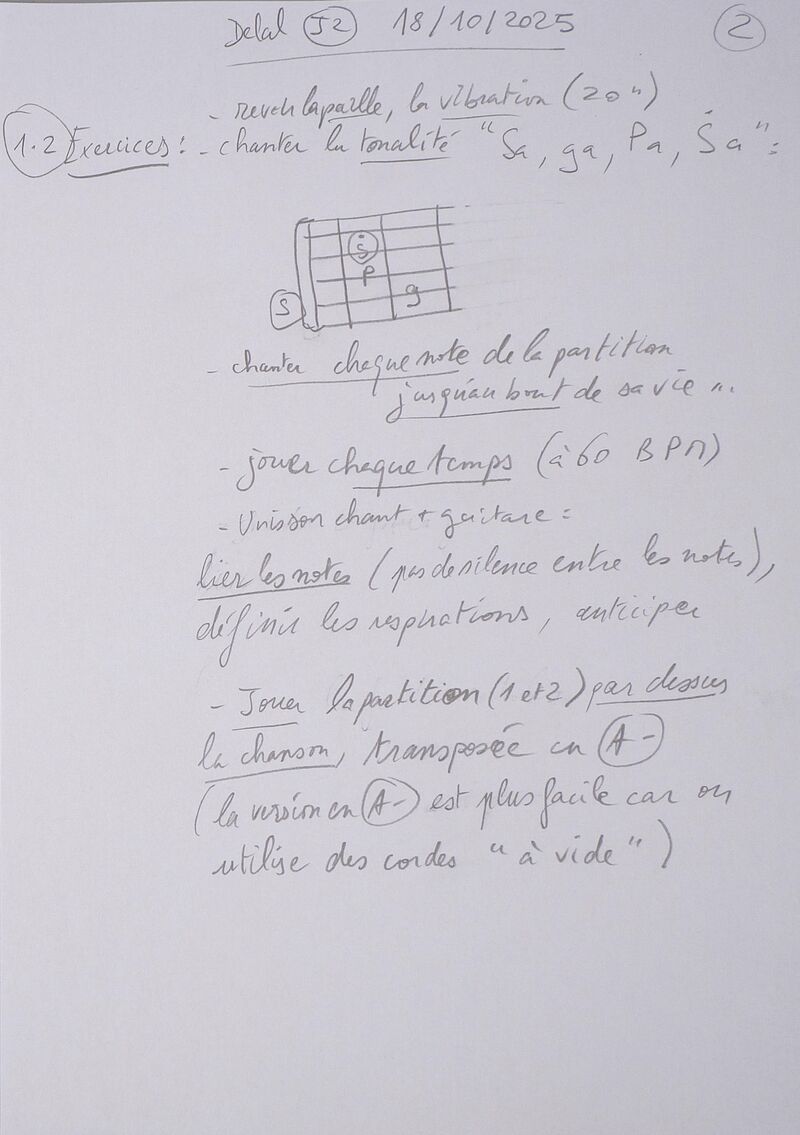 Delal J2 18/10/2025 2
- revoir la paille, la vibration (20")
1.2 Exercices : - chanter la tonalité "Sa, ga, Pa, Ṡa" :
Ṡ
P
S g
- chanter chaque note de la partition
jusqu'au bout de sa vie ...
- jouer chaque temps (à 60 BPM)
- Unisson chant + guitare :
lier les notes (pas de silence entre les notes),
définir les respirations, anticiper
- Jouer la partition (1 et 2) par dessus
la chanson, transposée en A-
(la version en A- est plus facile car on
utilise des cordes "à vide")